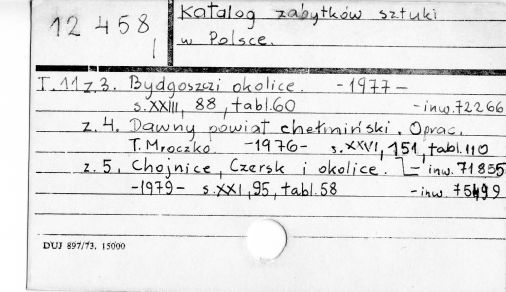 12 458
I
Katalog zabytków sztuki
w Polsce.
T. 11 z. 3. Bydgoszcz i okolice. -1977-
s. XXIII, 88, tabl. 60 -inw. 72266
z. 4. Dawny powiat chełmiński. Oprac.
T. Mroczko -1976- s. XXVI, 151, tabl. 110
z. 5. Chojnice, Czersk i okolice. - inw. 71855
-1979- s. XXI, 95, tabl. 58 -inw. 75499
DUJ 897/73. 15000